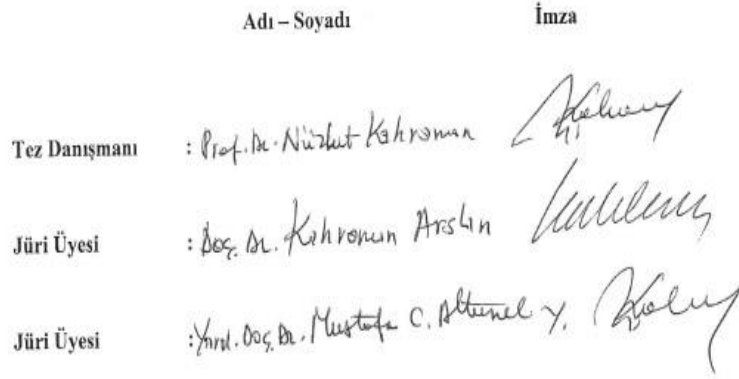 Adı – Soyadı İmza
Tez Danışmanı : Prof. Dr. Nüzhet Kahraman
Jüri Üyesi : Doç. Dr. Kahraman Arslan
Jüri Üyesi : Yard. Doç. Dr. Mustafa C. Altunel Y.